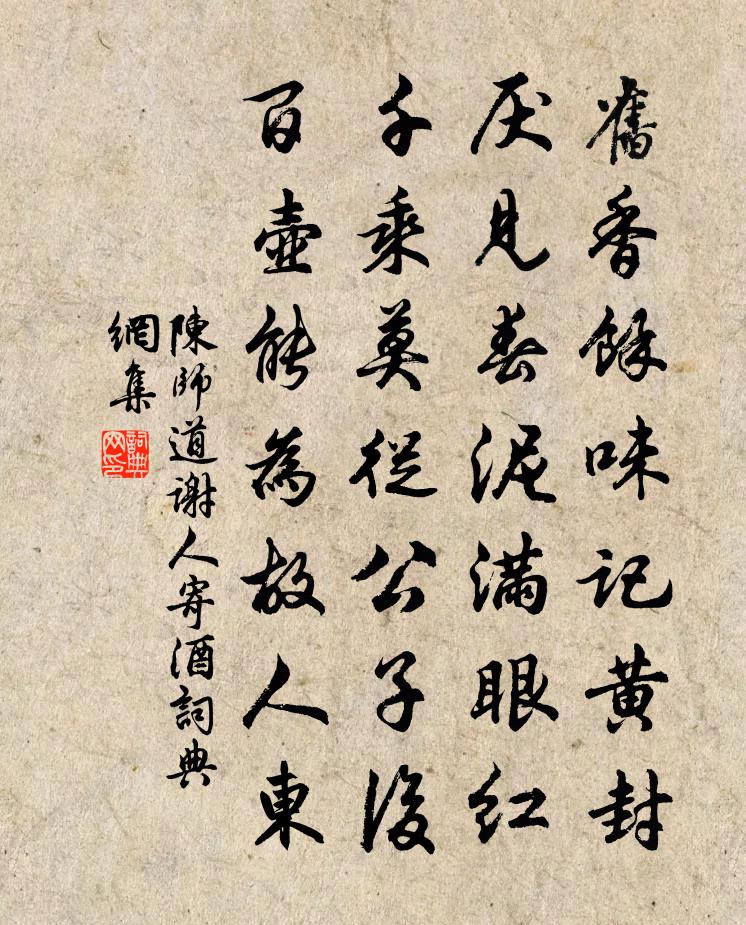 舊香餘味記黃封
厌見春泥滿眼紅
千乘莫從公子後
百壺能為故人東
陳師道謝人寄酒詞典
網集
詞典網印